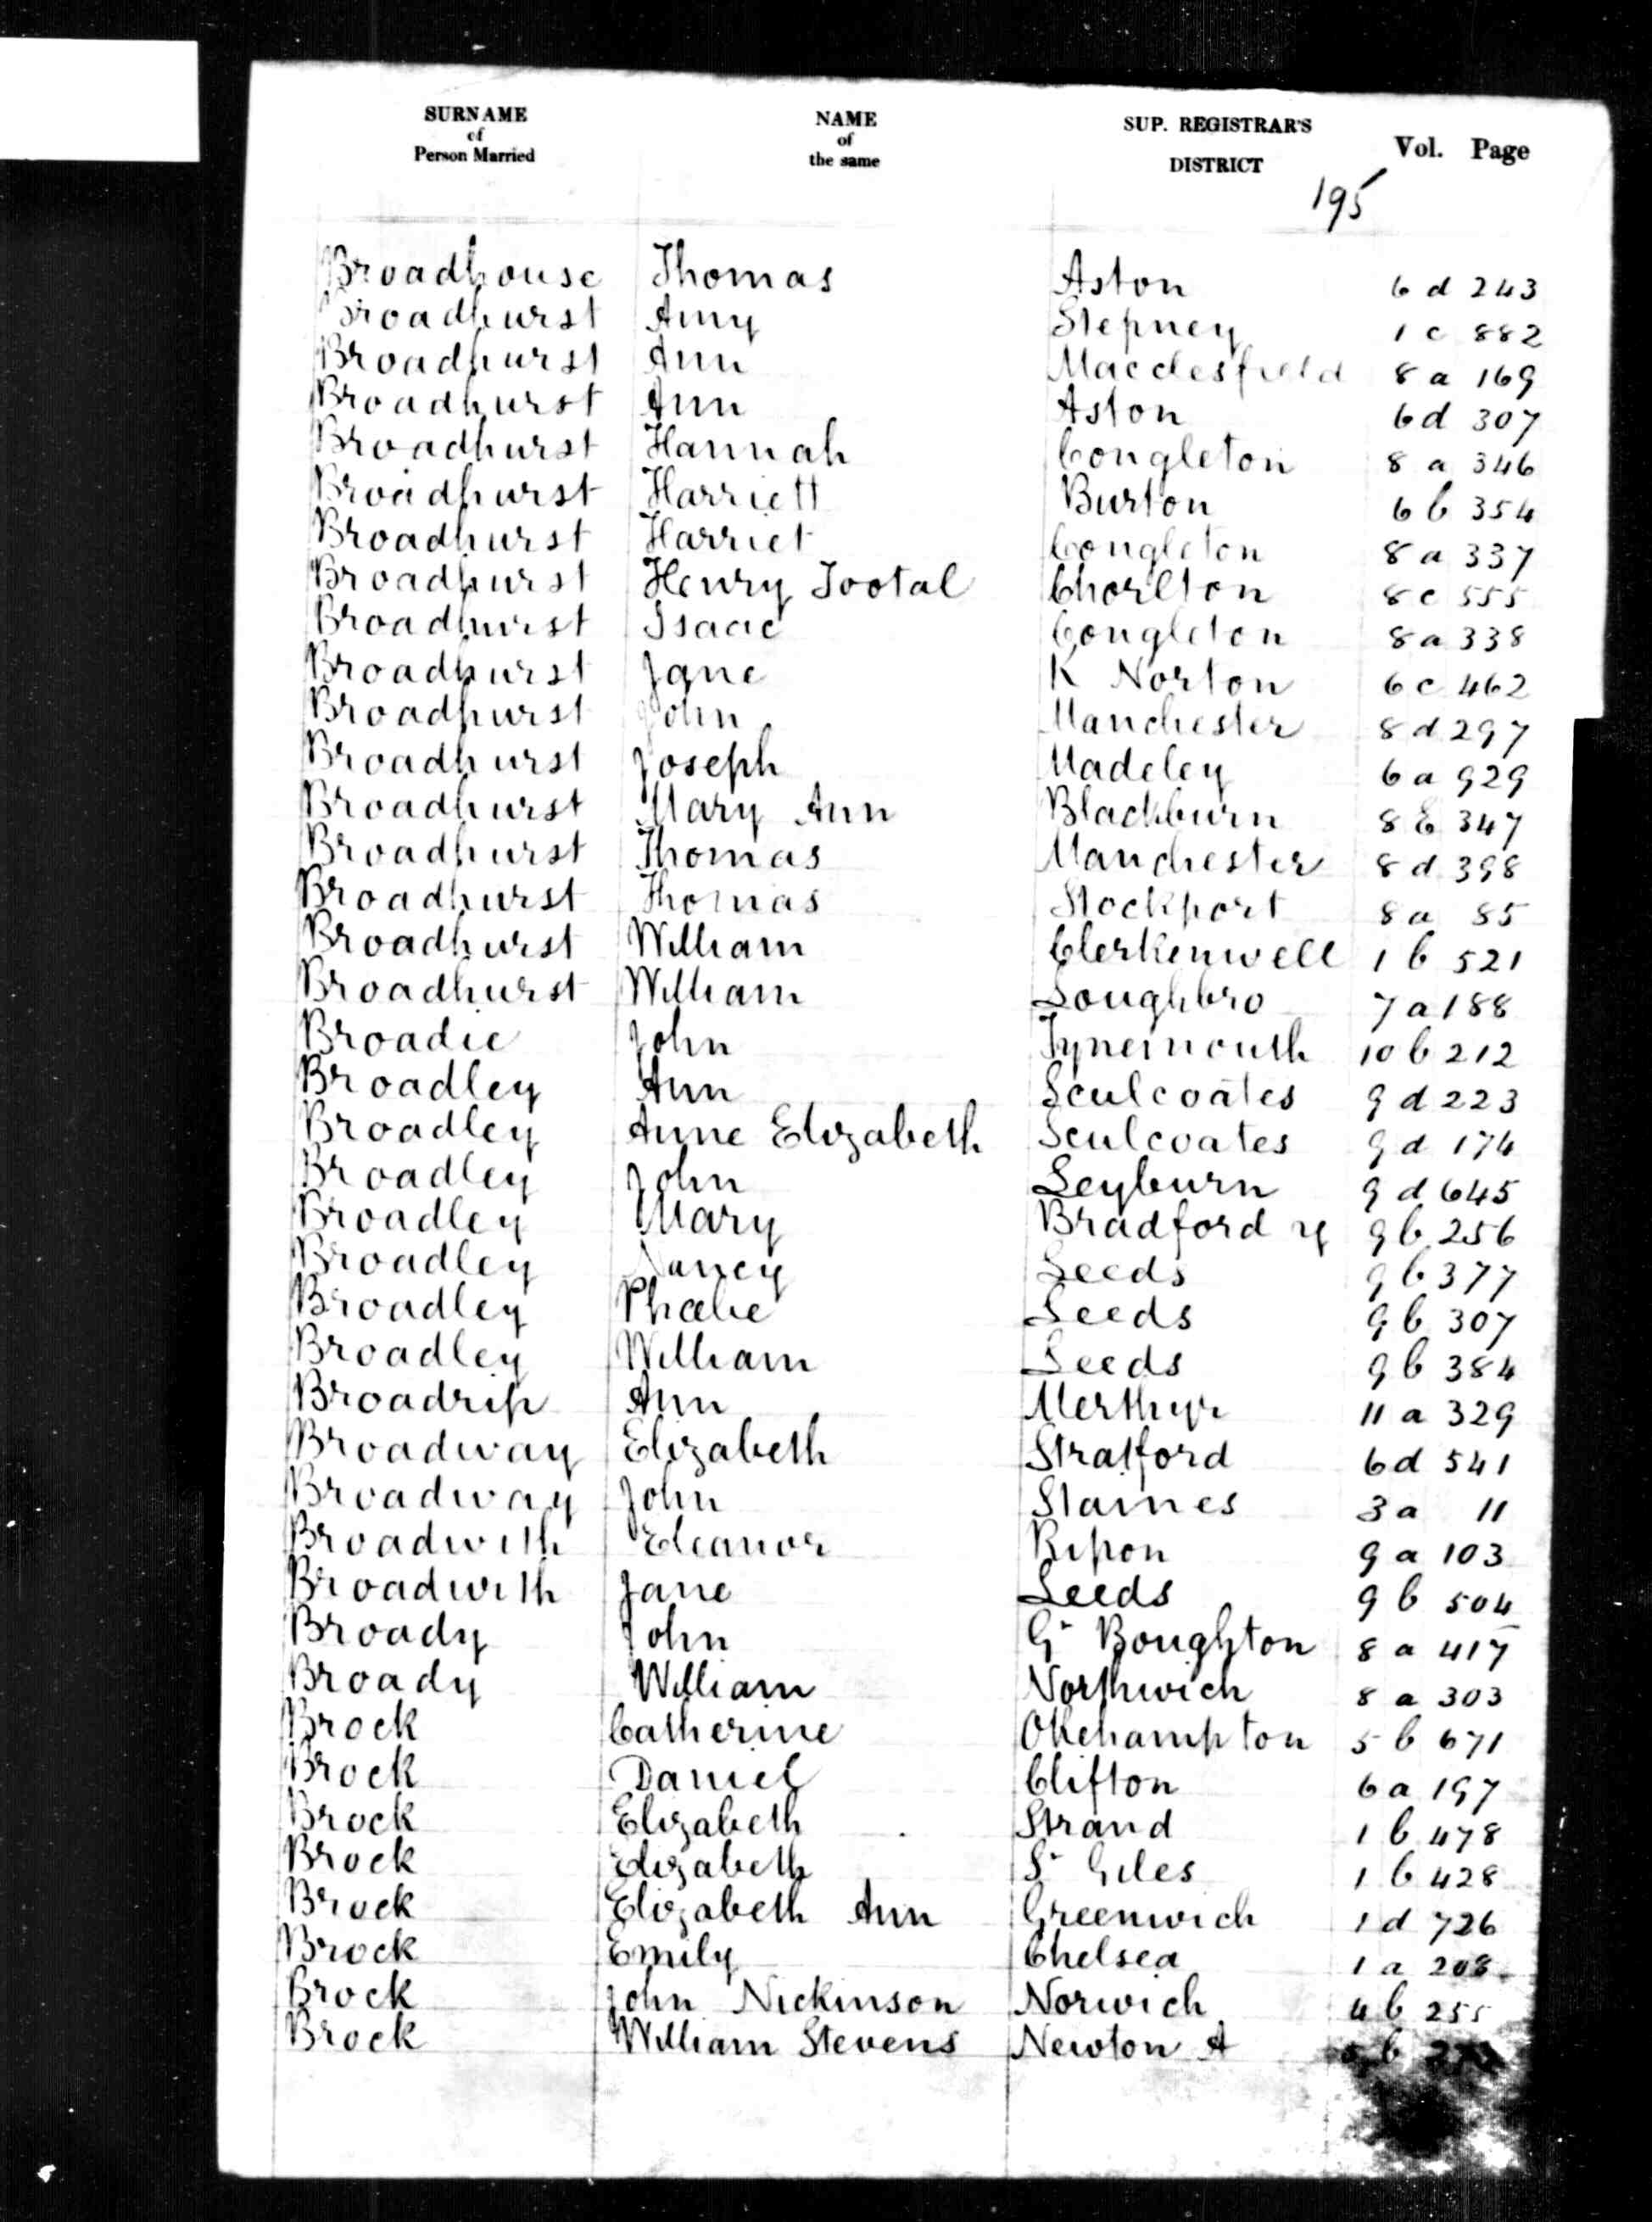 SURNAME of Person Married NAME of the same SUP. REGISTRAR'S DISTRICT Vol. Page
195
Broadhouse Thomas Aston 6 d 243
Broadhurst Amy Stepney 1 c 882
Broadhurst Ann Macclesfield 8 a 169
Broadhurst Ann Aston 6 d 307
Broadhurst Hannah Congleton 8 a 346
Broadhurst Harriett Burton 6 b 354
Broadhurst Harriet Congleton 8 a 337
Broadhurst Henry Tootal Chorlton 8 c 555
Broadhurst Isaac Congleton 8 a 338
Broadhurst Jane K Norton 6 c 462
Broadhurst John Manchester 8 d 297
Broadhurst Joseph Madeley 6 a 929
Broadhurst Mary Ann Blackburn 8 E 347
Broadhurst Thomas Manchester 8 d 398
Broadhurst Thomas Stockport 8 a 85
Broadhurst William Clerkenwell 1 b 521
Broadhurst William Loughbro 7 a 188
Broadie John Tynemouth 10 b 212
Broadley Ann Sculcoates 9 d 223
Broadley Anne Elizabeth Sculcoates 9 d 174
Broadley John Leyburn 9 d 645
Broadley Mary Bradford Y 9 b 256
Broadley Nancy Leeds 9 b 377
Broadley Phœbe Leeds 9 b 307
Broadley William Leeds 9 b 384
Broadrip Ann Merthyr 11 a 329
Broadway Elizabeth Stratford 6 d 541
Broadway John Staines 3 a 11
Broadwith Eleanor Ripon 9 a 103
Broadwith Jane Leeds 9 b 504
Broady John Gt Boughton 8 a 417
Broady William Northwich 8 a 303
Brock Catherine Okehampton 5 b 671
Brock Daniel Clifton 6 a 197
Brock Elizabeth Strand 1 b 478
Brock Elizabeth St Giles 1 b 428
Brock Elizabeth Ann Greenwich 1 d 726
Brock Emily Chelsea 1 a 208
Brock John Nickinson Norwich 4 b 255
Brock William Stevens Newton A b